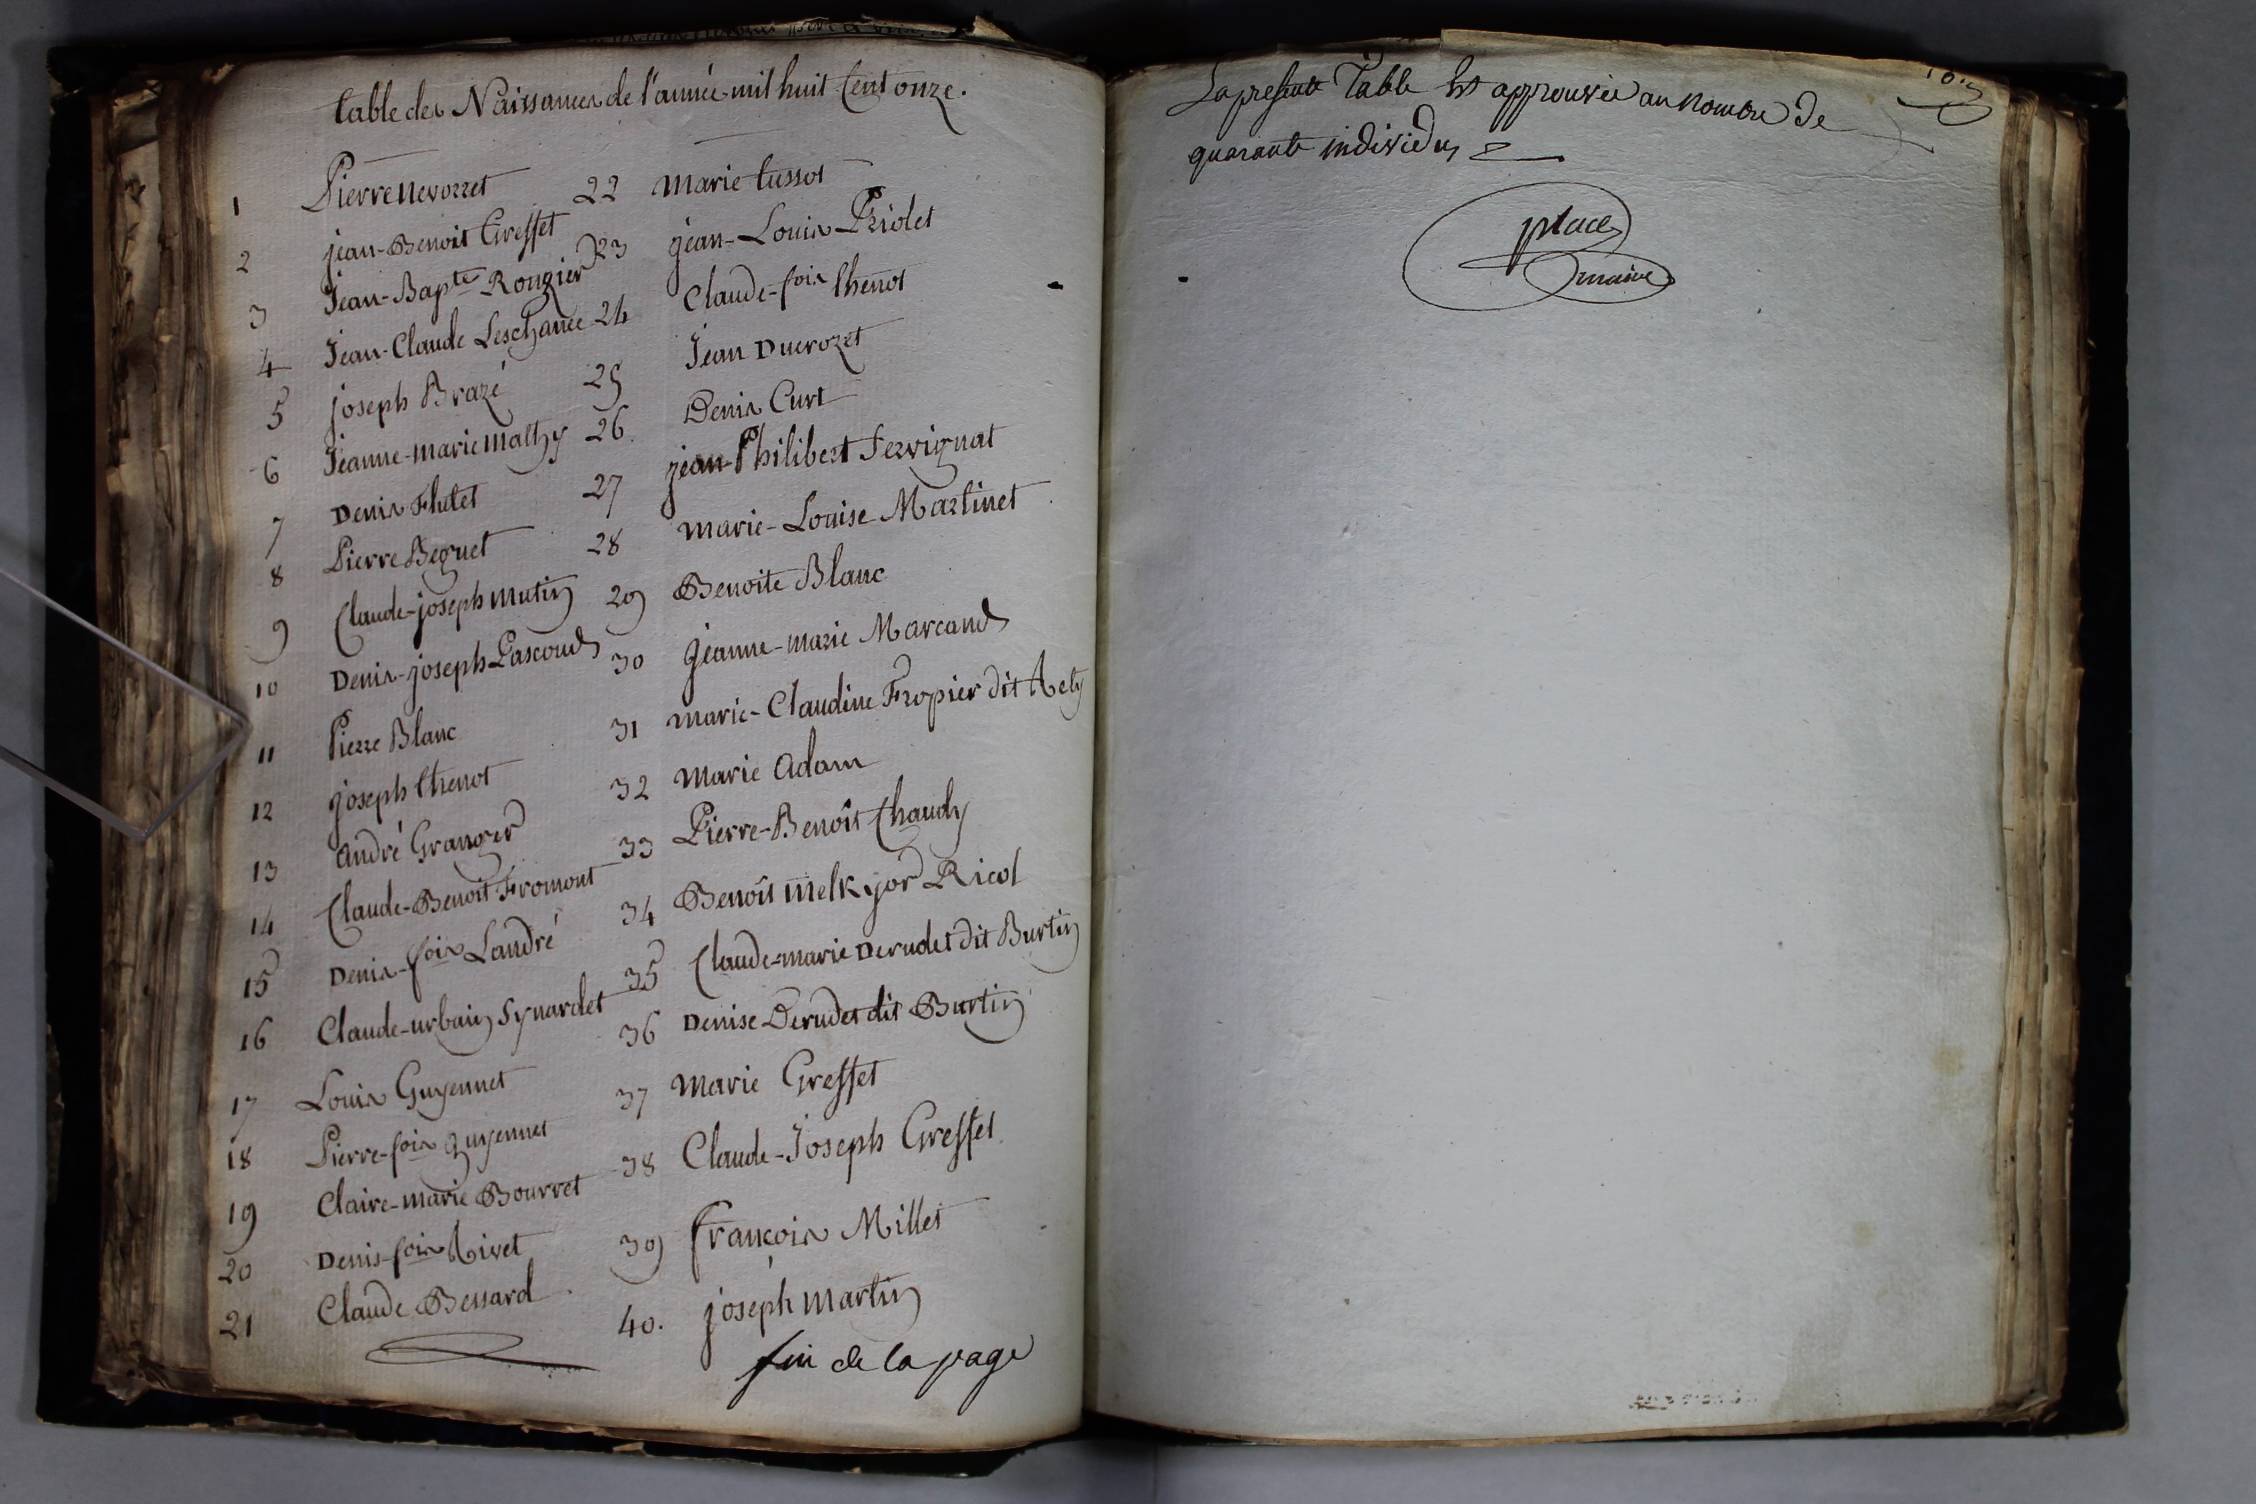 table des Naissances de l'année mil huit Cent onze.
1 Pierre Nevorret
2 jean-Benoit Gresset
3 Jean-Bapte Rougier
4 Jean-Claude Leschanée
5 joseph Brazé
6 Jeanne-marie mathy
7 Denis Flutet
8 Pierre Beguet
9 Claude-joseph mutin
10 Denis-joseph Pascoud
11 Pierre Blanc
12 joseph Chenot
13 andré Granger
14 Claude-Benoit Fromont
15 Denis-fois Landré
16 Claude-urbain Synardet
17 Louis Guyennet
18 Pierre-fois guyennet
19 Claire-marie Bourret
20 Denis-fois Rivet
21 Claude Bessard
22 Marie tussot
23 jean-Louis Priolet
24 Claude-fois Chenot
25 Jean Ducrozet
26 Denis Curt
27 jean-Philibert Servignat
28 marie-Louise Martinet
29 Benoite Blanc
30 jeanne-marie Marcand
31 marie-Claudine Fropier dit Rety
32 Marie adam
33 Pierre-Benoît Chaudy
34 Benoît melkyor Ricol
35 Claude-marie Derudet dit Burtin
36 Denise Derudet dit Burtin
37 marie Gresset
38 Claude-Joseph Gresset
39 françois Millet
40. joseph martin
fin de la page
La presente Table est approuvée au nombre de
quarante individus
place
maire